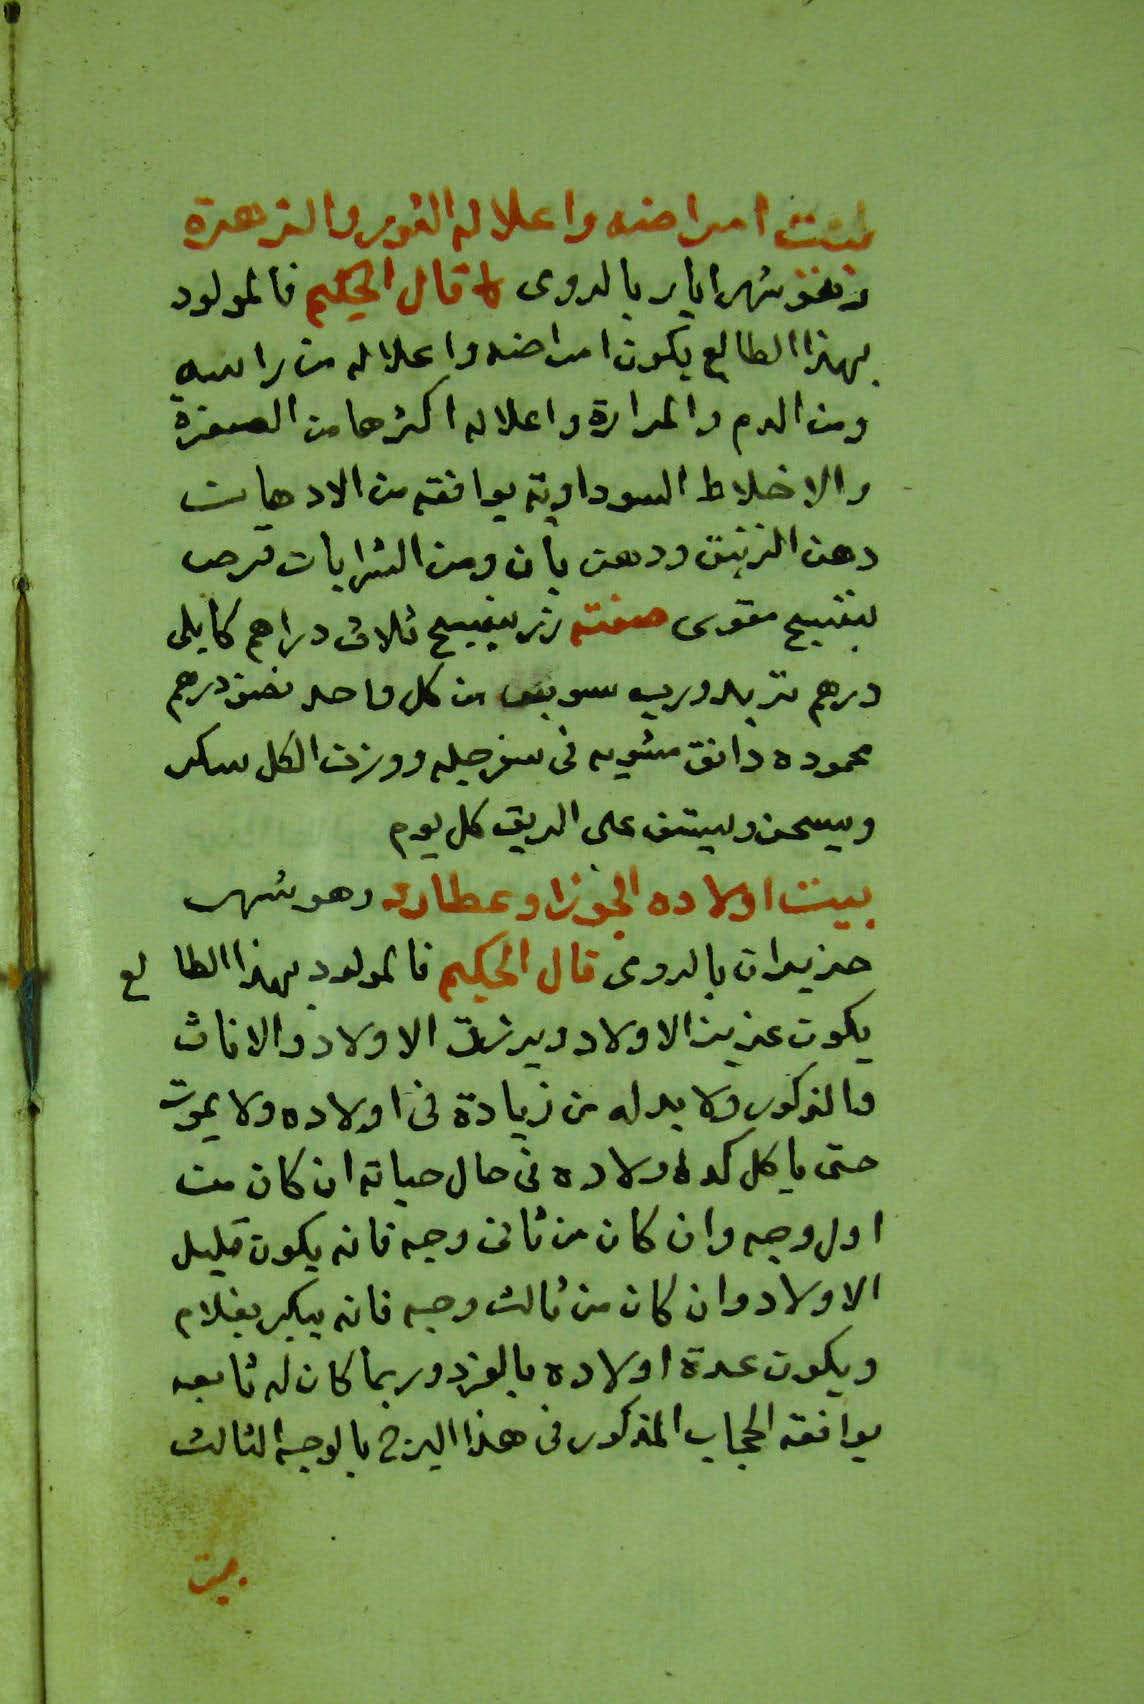 بيت امراضه واعلاله الثور والزهرة
وهو شهر ايار بالرومى قال الحكيم فالمولود
بهذا الطالع يكون امراضه واعلاله من راسه
ومن الدم والمرارة واعلاله اكثرها من الصفرة
والاخلاط السوداوية يوافقه من الادهان
دهن الزنبق ودهن بان ومن الشرابات قرص
بنفسج مقوى صفته زر بنفسج ثلاث دراهم كابلى
درهم تربد ورب سوس من كل واحد نصف درهم
محموده دانق مشويه فى سفرجله ووزن الكل سكر
ويسحق ويستف على الريق كل يوم
بيت اولاده الجوزا وعطارد وهو شهر
حزيران بالرومى قال الحكيم فالمولود بهذا الطالع
يكون عزيز الاولاد ويرزق الاولاد والاناث
والذكور ولا بد له من زيادة فى اولاده ولا يموت
حتى ياكل كد اولاده فى حال حياته ان كان من
اول وجه وان كان من ثانى وجه فانه يكون قليل
الاولاد وان كان من ثالث وجه فانه يبكر بغلام
ويكون عدة اولاده بالفرد وربما كان له تابعه
يوافقه الحجاب المذكور فى هذا البرج بالوجه الثالث
بيت